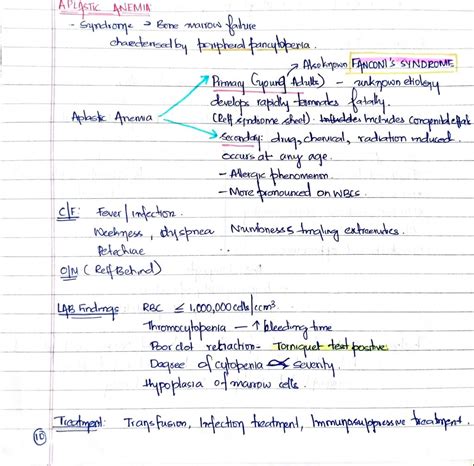 APLASTIC ANEMIA
- Syndrome → Bone marrow failure
characterised by peripheral pancytopenia.
→ Also known FANCONI'S SYNDROME
Primary (young Adults) - unknown etiology
develops rapidly terminates fatally.
Aplastic Anemia
(Ref syndrome sheet) Includes Includes Congenital
Seconday: drug, chemical, radiation induced.
occurs at any age.
- Allergic phenomenon.
- More pronounced on WBCs.
C/F: Fever / infection.
Weekness, dyspnea Numbness & tingling extremities.
Petechiae
O/M (Ref Behind)
LAB findings: RBC ≤ 1,000,000 cells/ccm³.
Thromocytopenia — ↑ bleeding time
Poor clot retraction - Torniquet test positive
Degree of cytopenia ∝ severity.
Hypoplasia of marrow cells.
Treatment: Transfusion, Infection treatment, Immunosuppressive treatment.
10